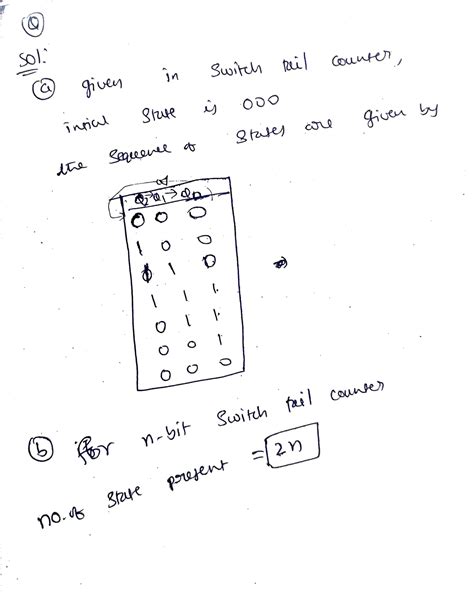 Q
Sol:
(a) given in Switch tail counter,
intial State is 000
the Sequence of States are given by
Q2 → Q1 → Q0
0 0 0
1 0 0
1 1 0
1 1 1
0 1 1
0 0 1
0 0 0
(b) for n-bit Switch tail counter
no. of State present = 2n